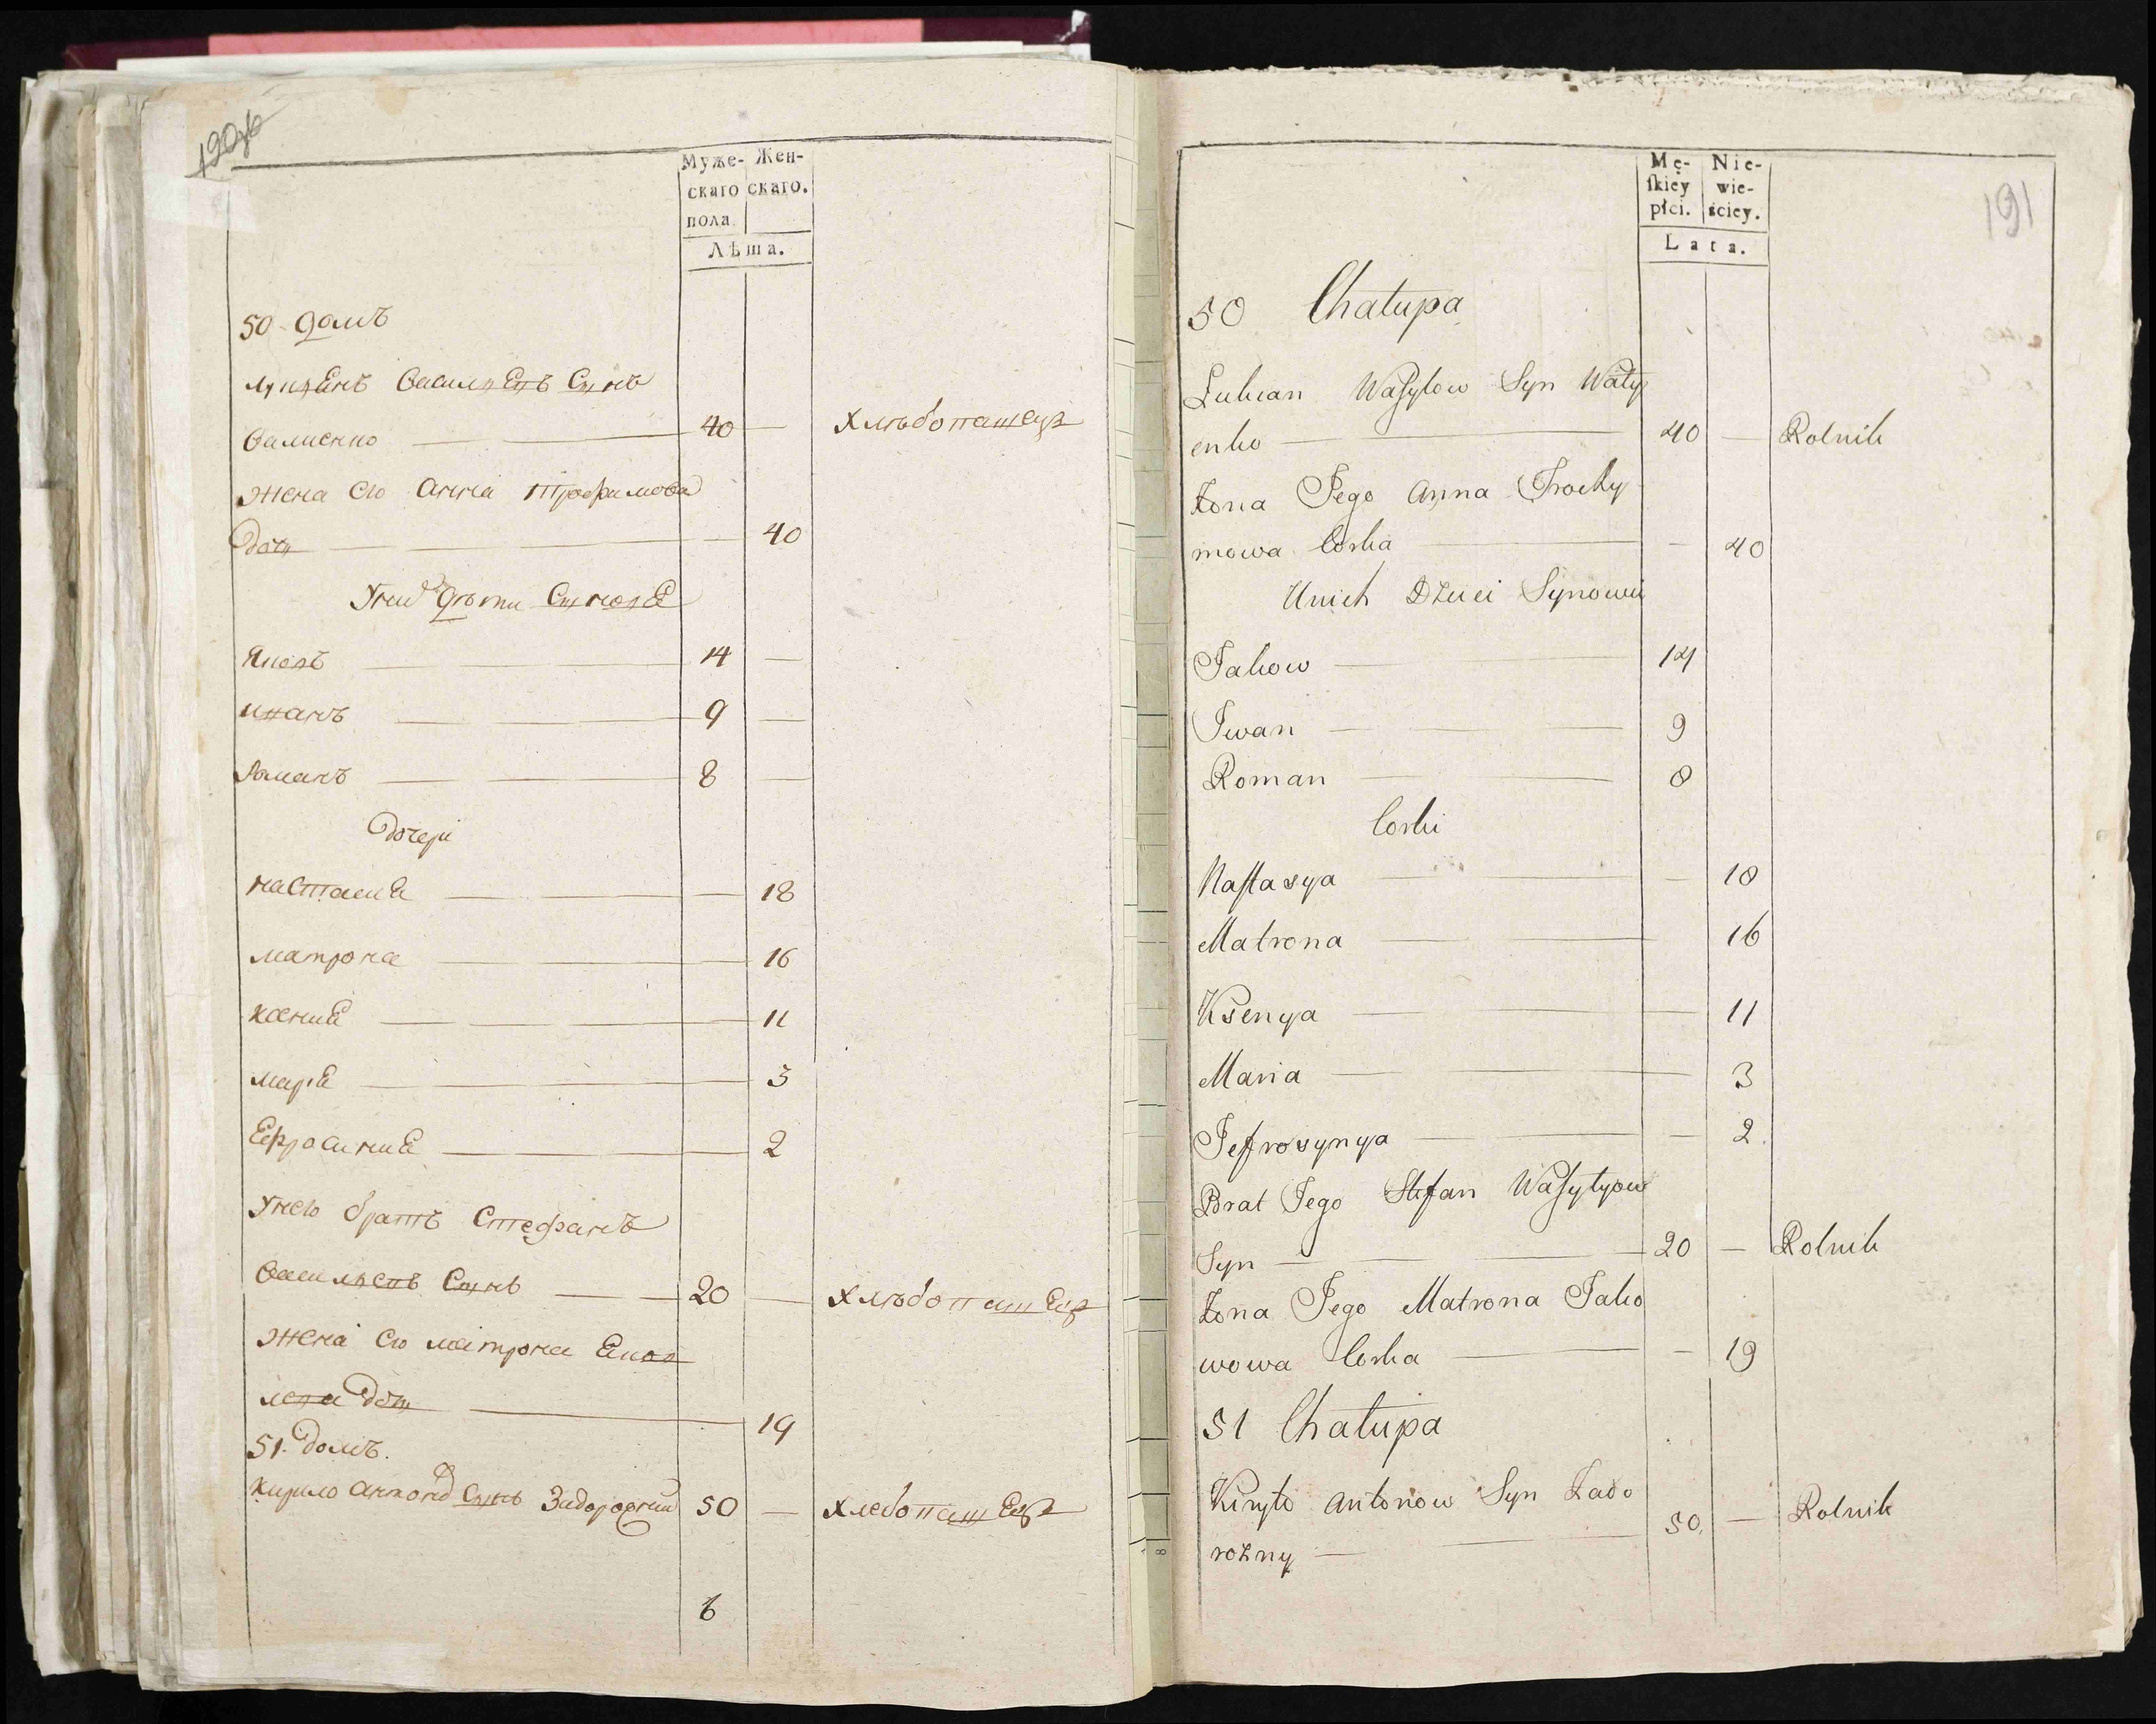 190зв
Муже- Жен-
скаго скаго.
пола
Лѣта.
50 домъ
Лукіянъ Василіевъ Сынъ
Валиенко 40 — Хлѣбопашецъ
Жена его Анна Трофимова
Дочь — 40
У них дѣти Сыновя
Яковъ 14 —
Иванъ 9 —
Романъ 8 —
Дочери
Настасия — 18
Матрона — 16
Ксения — 11
Мария — 3
Ефросиния — 2
У него братъ Стефанъ
Василіевъ Сынъ 20 — Хлѣбопашецъ
Жена его Матрона
Дочь — 19
51. Домъ.
Кирило Антоновъ Сынъ Задорожний 50 — Хлебопашецъ
6
191
Mę- Nie-
skiey wie-
płci. ściey.
Lata.
50 Chałupa
Łukian Wasylow Syn Wały
enko 40 — Rolnik
Żona Jego Anna Trochy
mowa Corka — 40
Unich Dzieci Synowie
Jakow 14
Iwan 9
Roman 8
Corki
Nastasya — 18
Matrona 16
Ksenya — 11
Maria 3
Jefrosynya — 2
Brat Jego Stefan Wasylyow
Syn 20 — Rolnik
Żona Jego Matrona Jako
wowa Corka — 19
51 Chałupa
Kiryło Antonow Syn Zado
rożny 50 — Rolnik